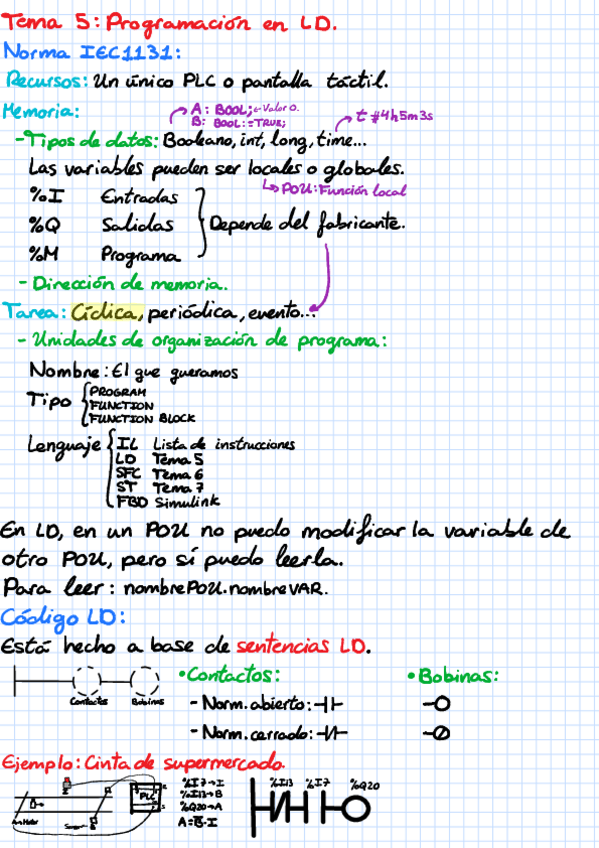 Tema 5: Programación en LD.
Norma IEC1131:
Recursos: Un único PLC o pantalla táctil.
Memoria:
A: BOOL; ← Valor 0.
B: BOOL:=TRUE;
t#4h5m3s
- Tipos de datos: Booleano, int, long, time...
Las variables pueden ser locales o globales.
POU: Función local
%I Entradas
%Q Salidas
%M Programa
Depende del fabricante.
- Dirección de memoria.
Tarea: Cíclica, periódica, evento...
- Unidades de organización de programa:
Nombre: El que queramos
Tipo
PROGRAM
FUNCTION
FUNCTION BLOCK
Lenguaje
IL Lista de instrucciones
LD Tema 5
SFC Tema 6
ST Tema 7
FBD Simulink
En LD, en un POU no puedo modificar la variable de
otro POU, pero sí puedo leerla.
Para leer: nombrePOU.nombreVAR.
Código LD:
Está hecho a base de sentencias LD.
Contactos Bobinas
• Contactos:
- Norm. abierto:
- Norm. cerrado:
• Bobinas:
Ejemplo: Cinta de supermercado.
PLC
I
B
%I7→I
%I13→B
%Q20→A
A=B̅·I
%I13 %I7 %Q20